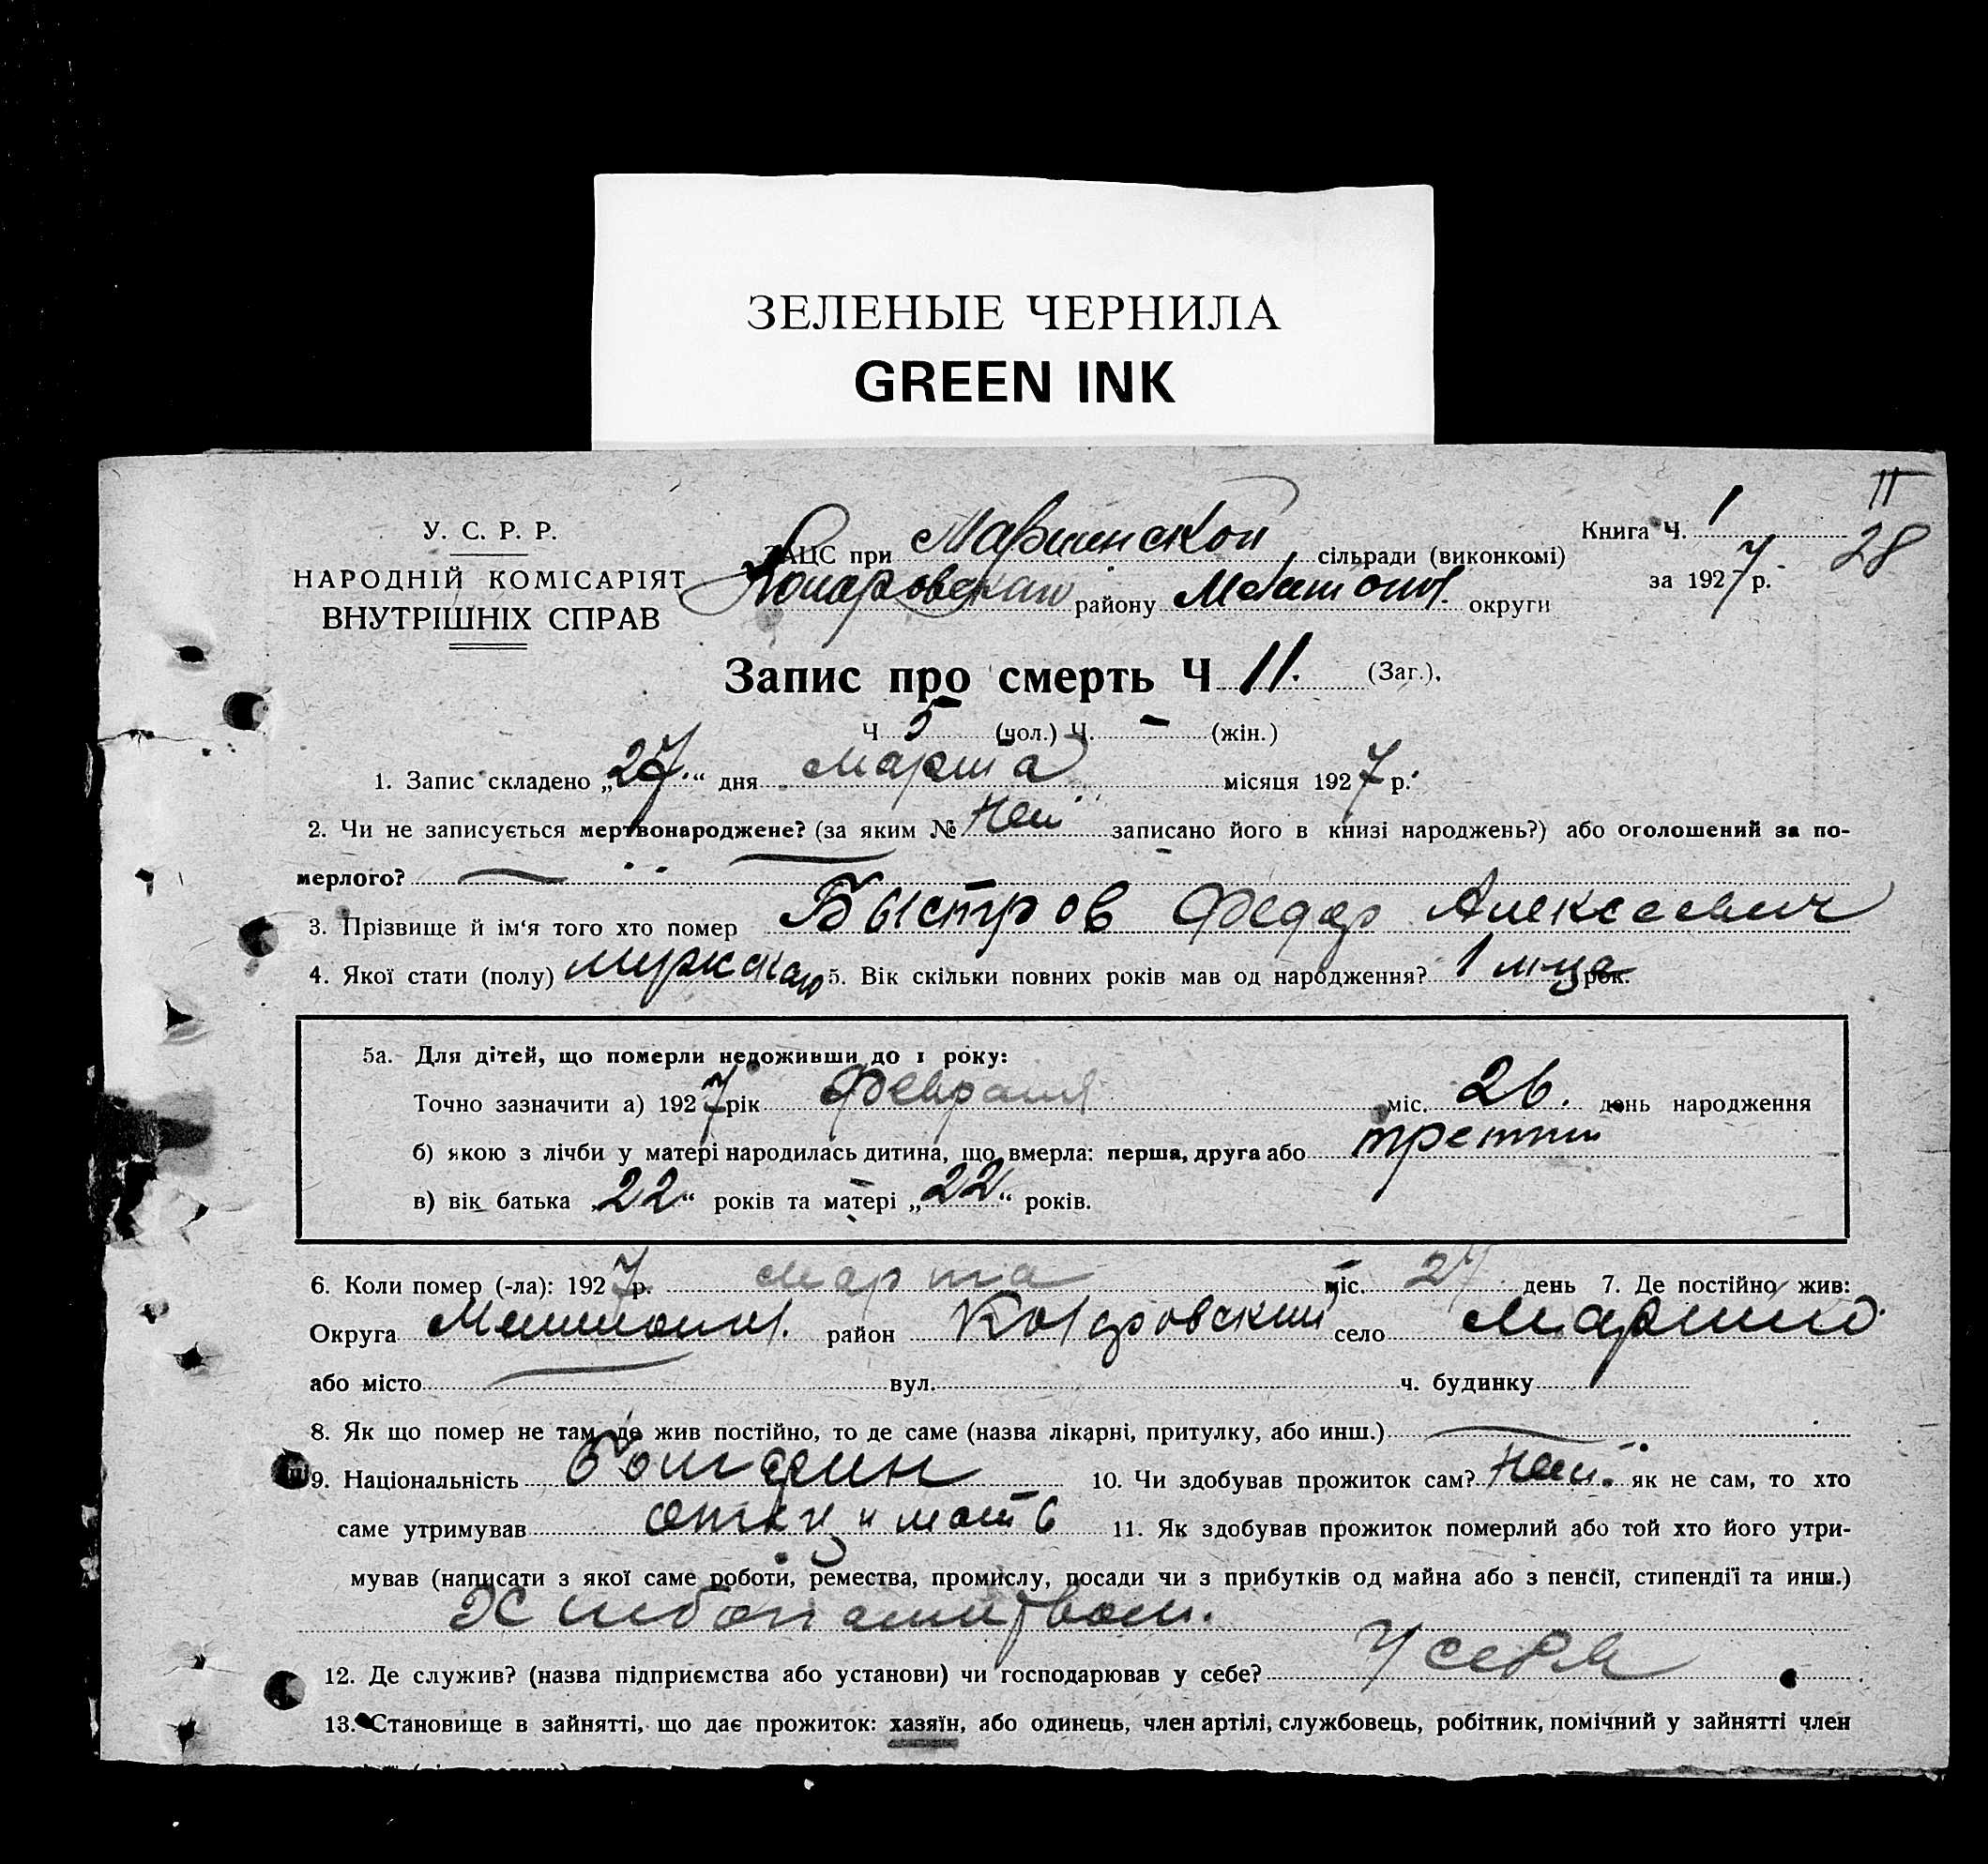 ЗЕЛЕНЫЕ ЧЕРНИЛА
GREEN INK
II
28
У. С. Р. Р.
НАРОДНІЙ КОМІСАРІЯТ
ВНУТРІШНІХ СПРАВ
ЗАЦС при сільради (виконкомі)
району Мелитоп. округи
Книга Ч. 1
за 1927 р.
Запис про смерть Ч 11. (Заг.).
Ч 5 (чол.) Ч. – (жін.)
1. Запис складено „27.“ дня марта місяця 1927 р.
2. Чи не записується мертвонароджене? (за яким № Нет записано його в книзі народжень?) або оголошений за по-
мерлого?
3. Прізвище й ім‘я того хто помер Быстров Федор Алексеевич
4. Якої стати (полу) мужскаго 5. Вік скільки повних років мав од народження? 1 м-ца рок.
5а. Для дітей, що померли недоживши до 1 року:
Точно зазначити а) 1927 рік Февраля міс. 26. день народження
б) якою з лічби у матері народилась дитина, що вмерла: перша, друга або третий
в) вік батька „22“ років та матері „22“ років.
6. Коли помер (-ла): 1927 р. марта міс. 27 день 7. Де постійно жив:
Округа Мелитоп. район село
або місто вул. ч. будинку
8. Як що помер не там, де жив постійно, то де саме (назва лікарні, притулку, або инш.)
9. Національність 10. Чи здобував прожиток сам? Нет. як не сам, то хто
саме утримував отец и мать 11. Як здобував прожиток померлий або той хто його утри-
мував (написати з якої саме роботи, ремества, промислу, посади чи з прибутків од майна або з пенсії, стипендії та инш.)
Хлебопашеством.
12. Де служив? (назва підприємства або установи) чи господарював у себе? У себя
13. Становище в зайнятті, що дає прожиток: хазяїн, або одинець, член артілі, службовець, робітник, помічний у зайнятті член